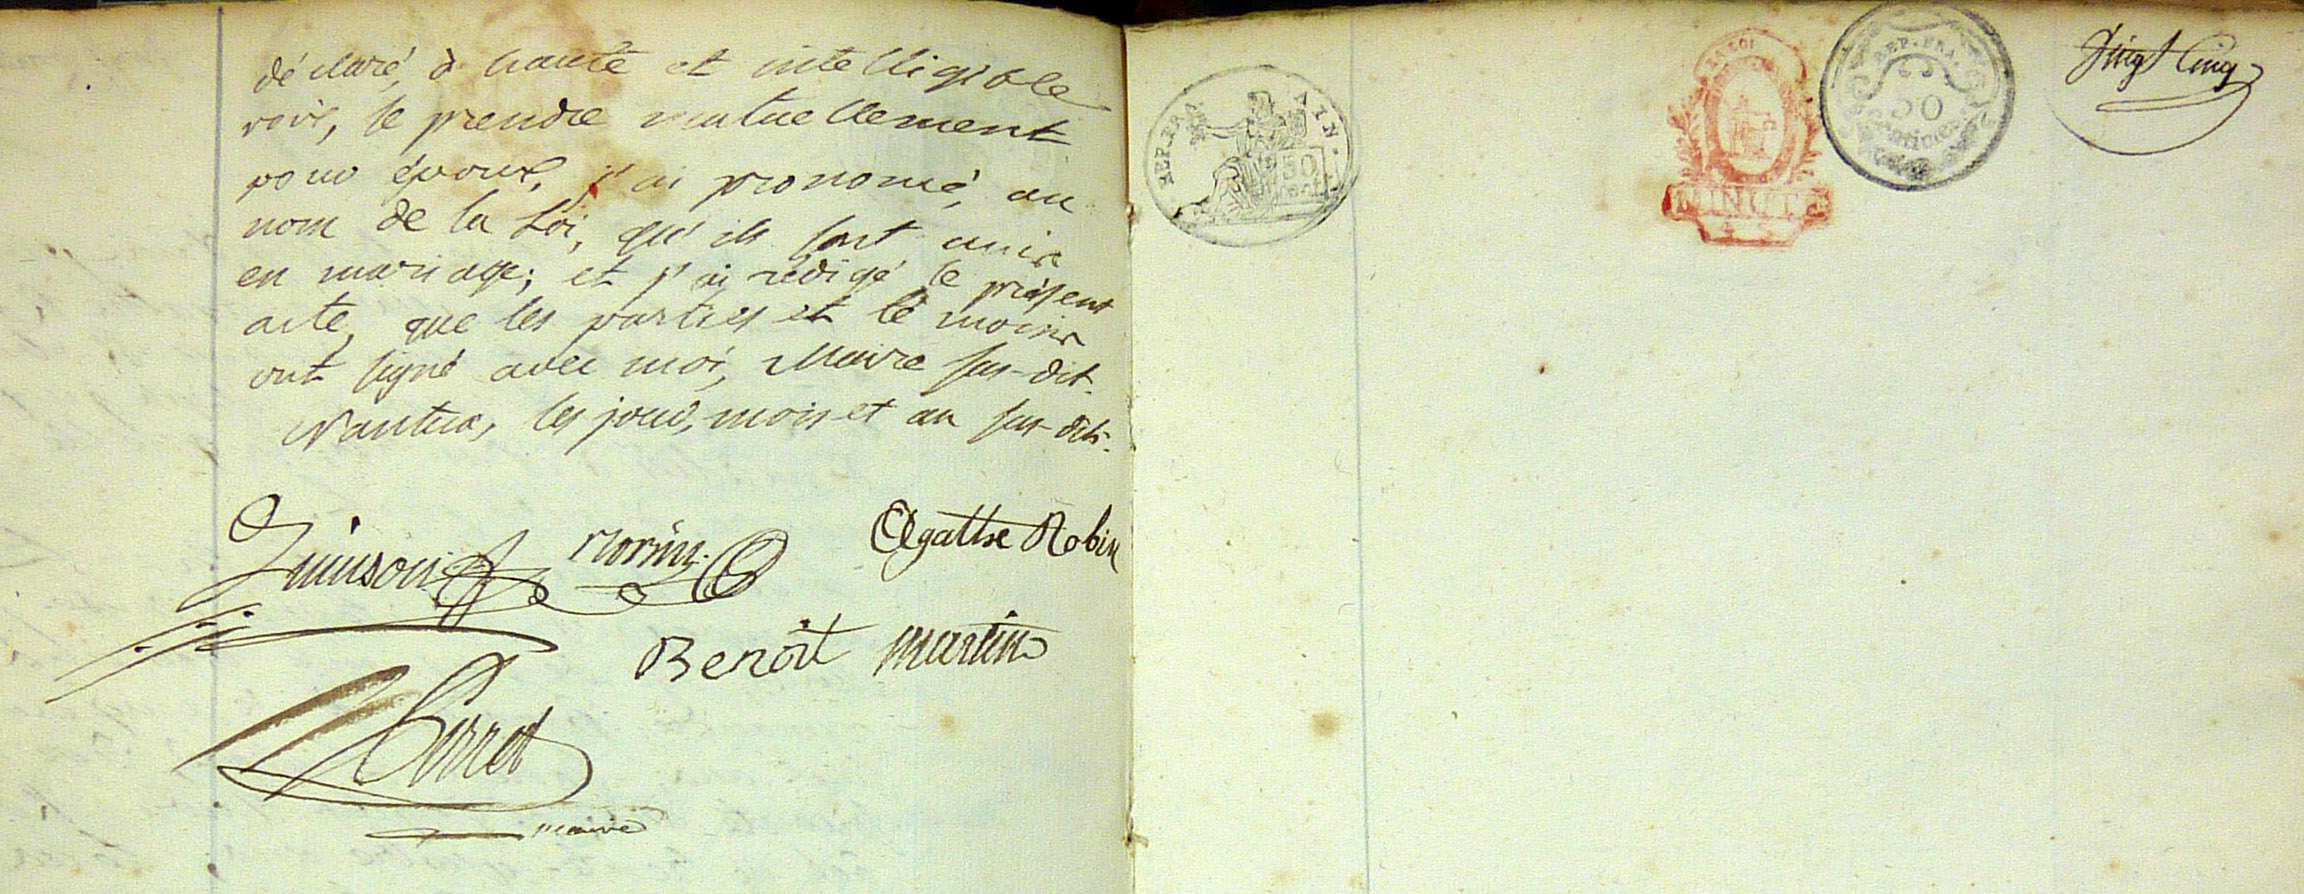 déclaré, à haute et intelligible
voix, se prendre mutuellement
pour époux, j'ai prononcé, au
nom de la Loi, qu'ils sont unis
en mariage; et j'ai rédigé le présent
acte, que les parties et témoins
ont signé avec moi, Maire sus-dit.
Nantua, les jour, mois et an sus-dits.
Quinson Morin Agathe Robin
Benoît Martin
maire
REP. FRA
50
REP. FRA.
50
centimes
LA LOI
MINUTE
45
Vingt Cinq